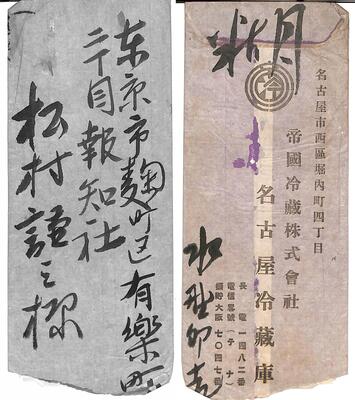 东京市麹町区有樂町
二丁目報知社
松村謹三様
冷
名古屋市西區堀内町四丁目
帝國冷藏株式會社
名古屋冷藏庫
長電一四八二番
電信畧號(テナ)
振貯大阪七〇四七番
水野卯吉